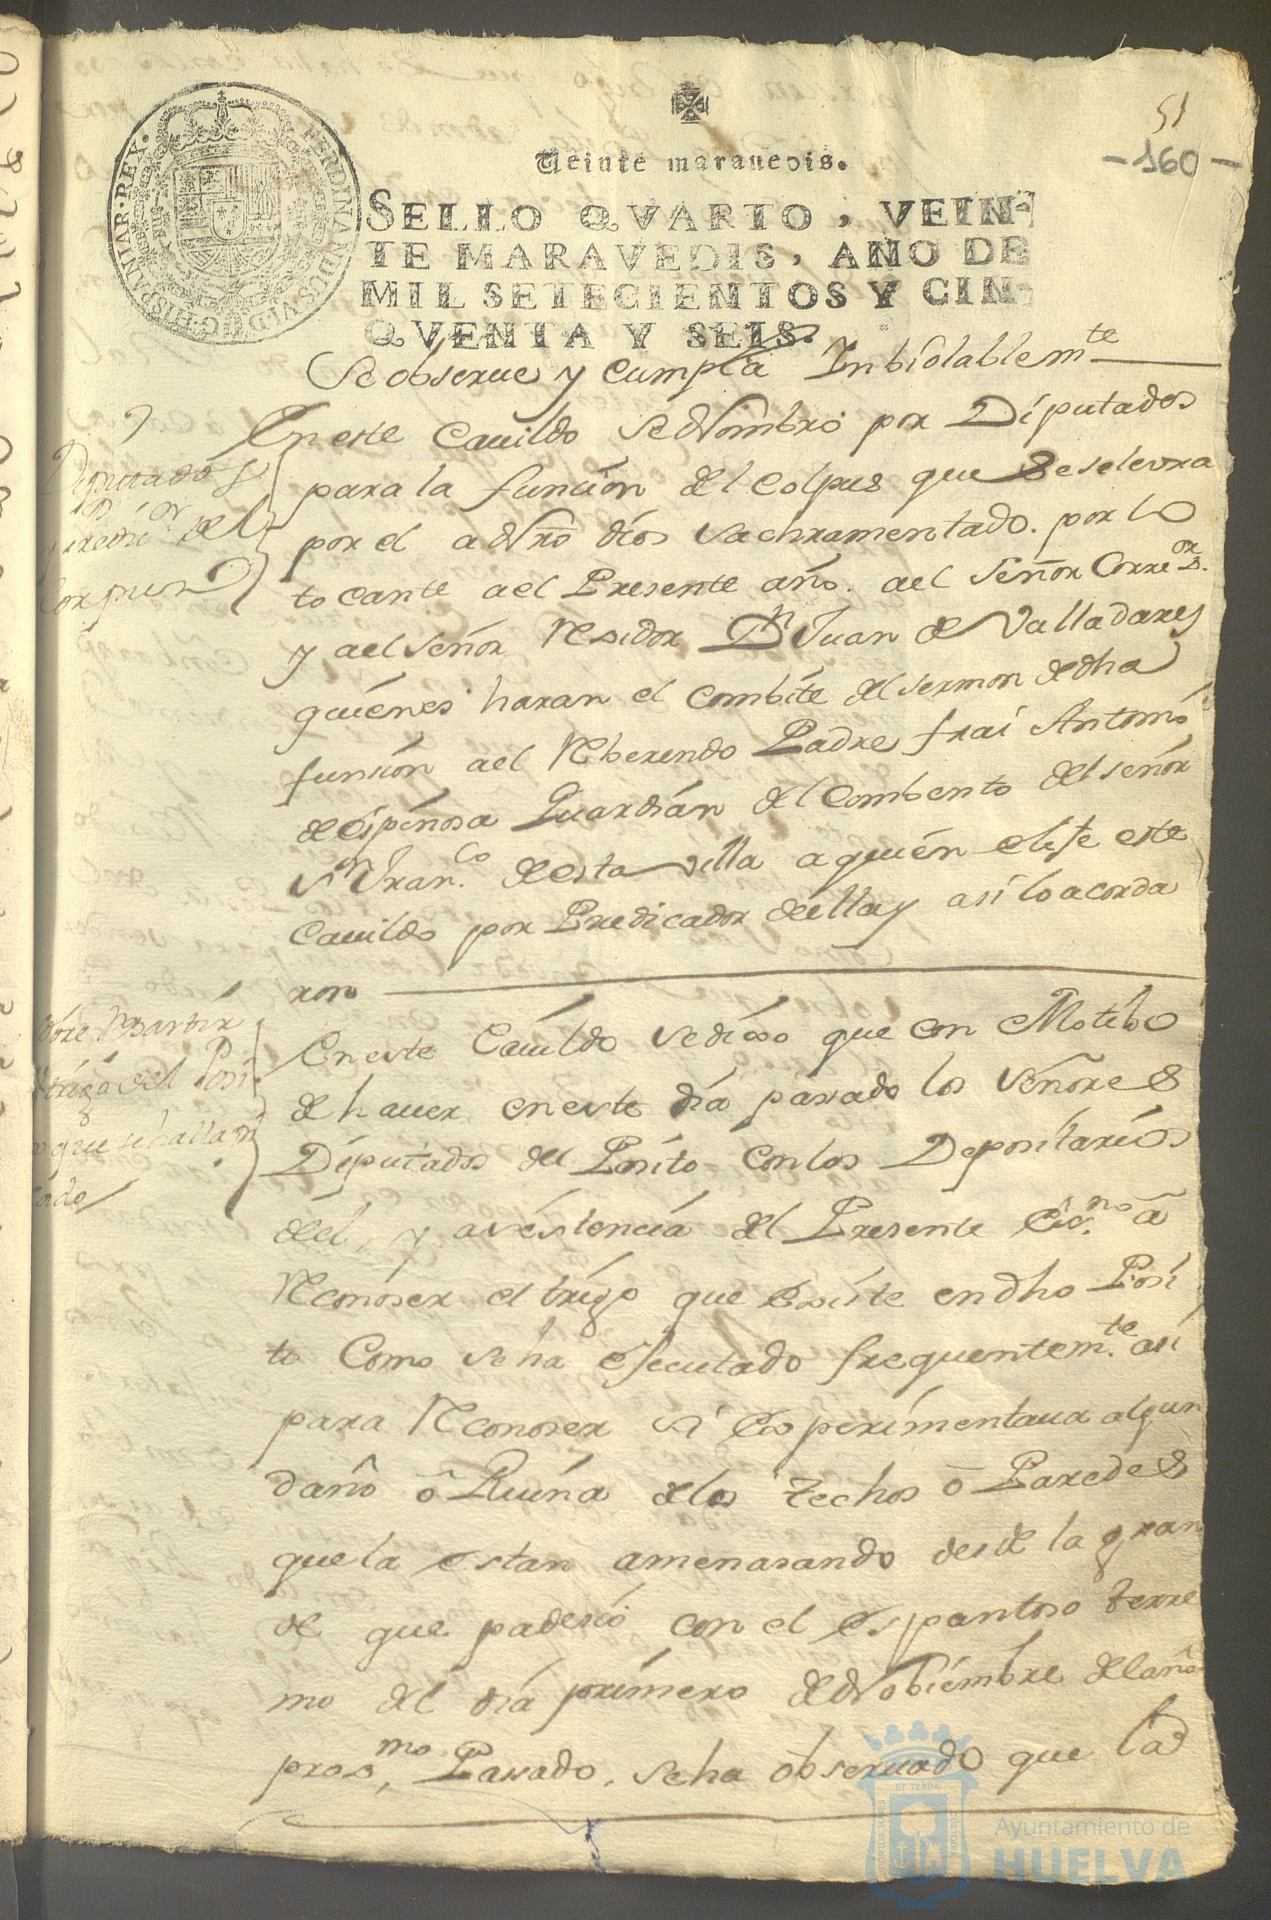 51
-160-
HISPANIAR·REX·
FERDINANDUS·VI·D·G·
Veinte maravedis.
SELLO QVARTO, VEIN-
TE MARAVEDIS, AÑO DE
MIL SETECIENTOS Y CIN-
QVENTA Y SEIS.
Se obserue y cumpla Inbiolablemte
Diputados
y predicor del
Corpus
En este Cauildo se Nombro por Diputados
para la funcion del Colpus que Se selevra
por el a Nro dios Sachramentado. por lo
tocante a el Presente año. ael Señor Correor
y ael Señor Residor Dn Juan de Valladares
quienes haran el Combite del sermon de dha
funsion ael Reberendo Padre frai Antonio
de espinosa Guardian del Combento del señor
Sn Franco desta villa a quien elije este
Cauildo por Predicador de ella y asi lo acorda
ron
sobre Repartir
trigo del Posi
que se halla
En este Cauildo se dixo que con Motibo
de hauer en este dia pasado los Señores
Diputados del Posito con los Depositarios
del, y asistencia del Presente Esno a
Reconoser el trigo que Existe en dho Posi
to Como se ha efecutado frequentemte asi
para Reconoser si Experimentaua algun
daño o Ruina de los Techos o Paredes
que la estan amenasando desde la gran
de que padesio con el espantoso terre
mo del dia primero de Nobiembre del año
proxmo Pasado, se ha obseruado que la
Ayuntamiento de
HUELVA